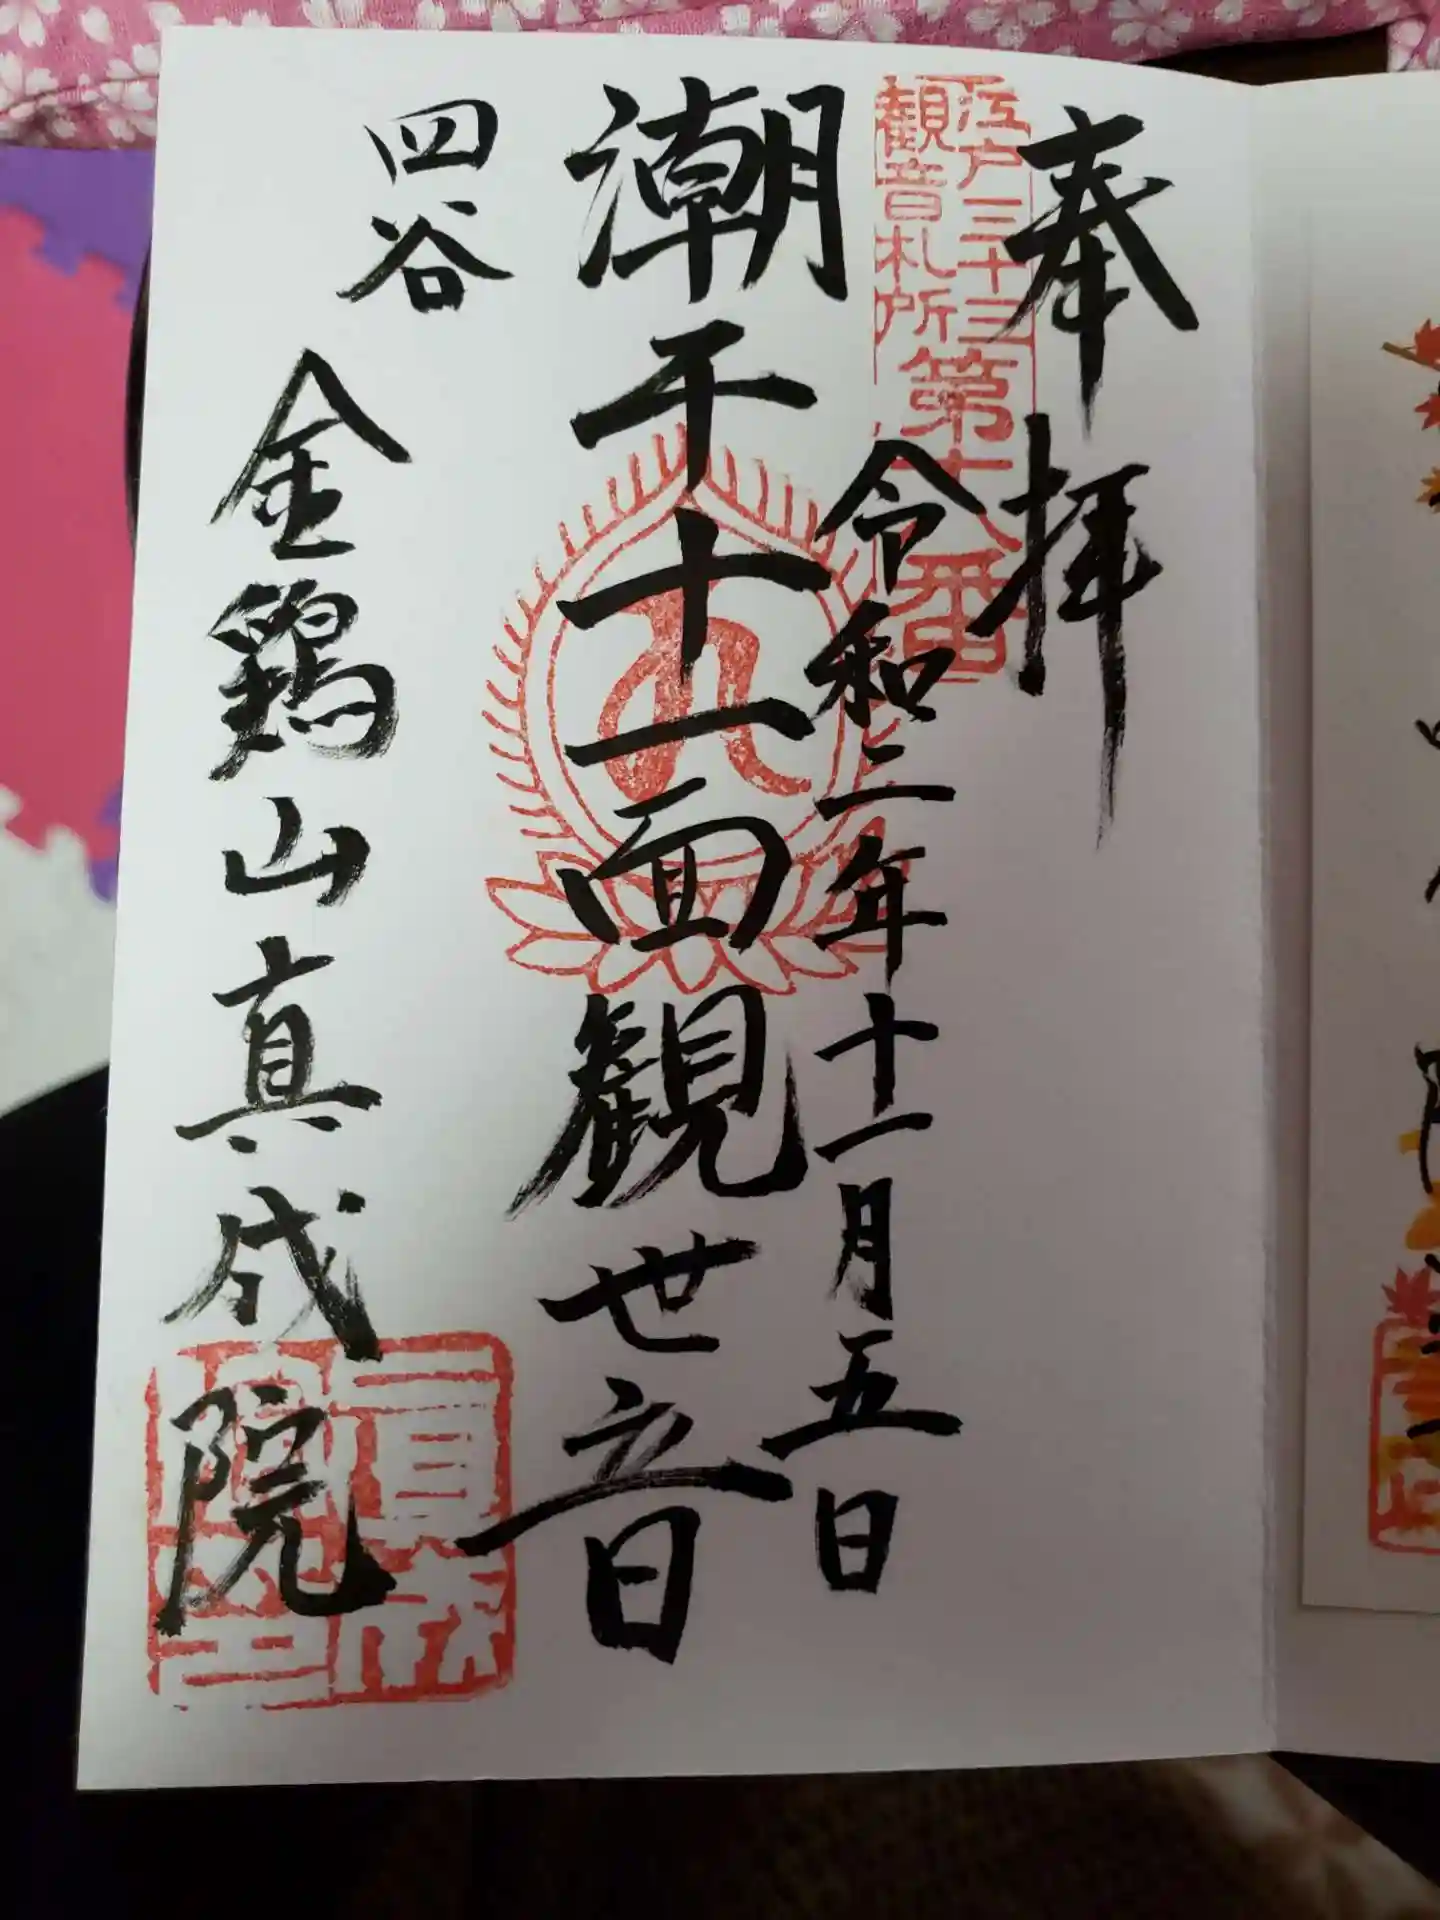 奉拝
江戸三十三
観音札所
第十八番
令和二年十一月五日
潮干十一面観世音
四谷
金鶏山真成院